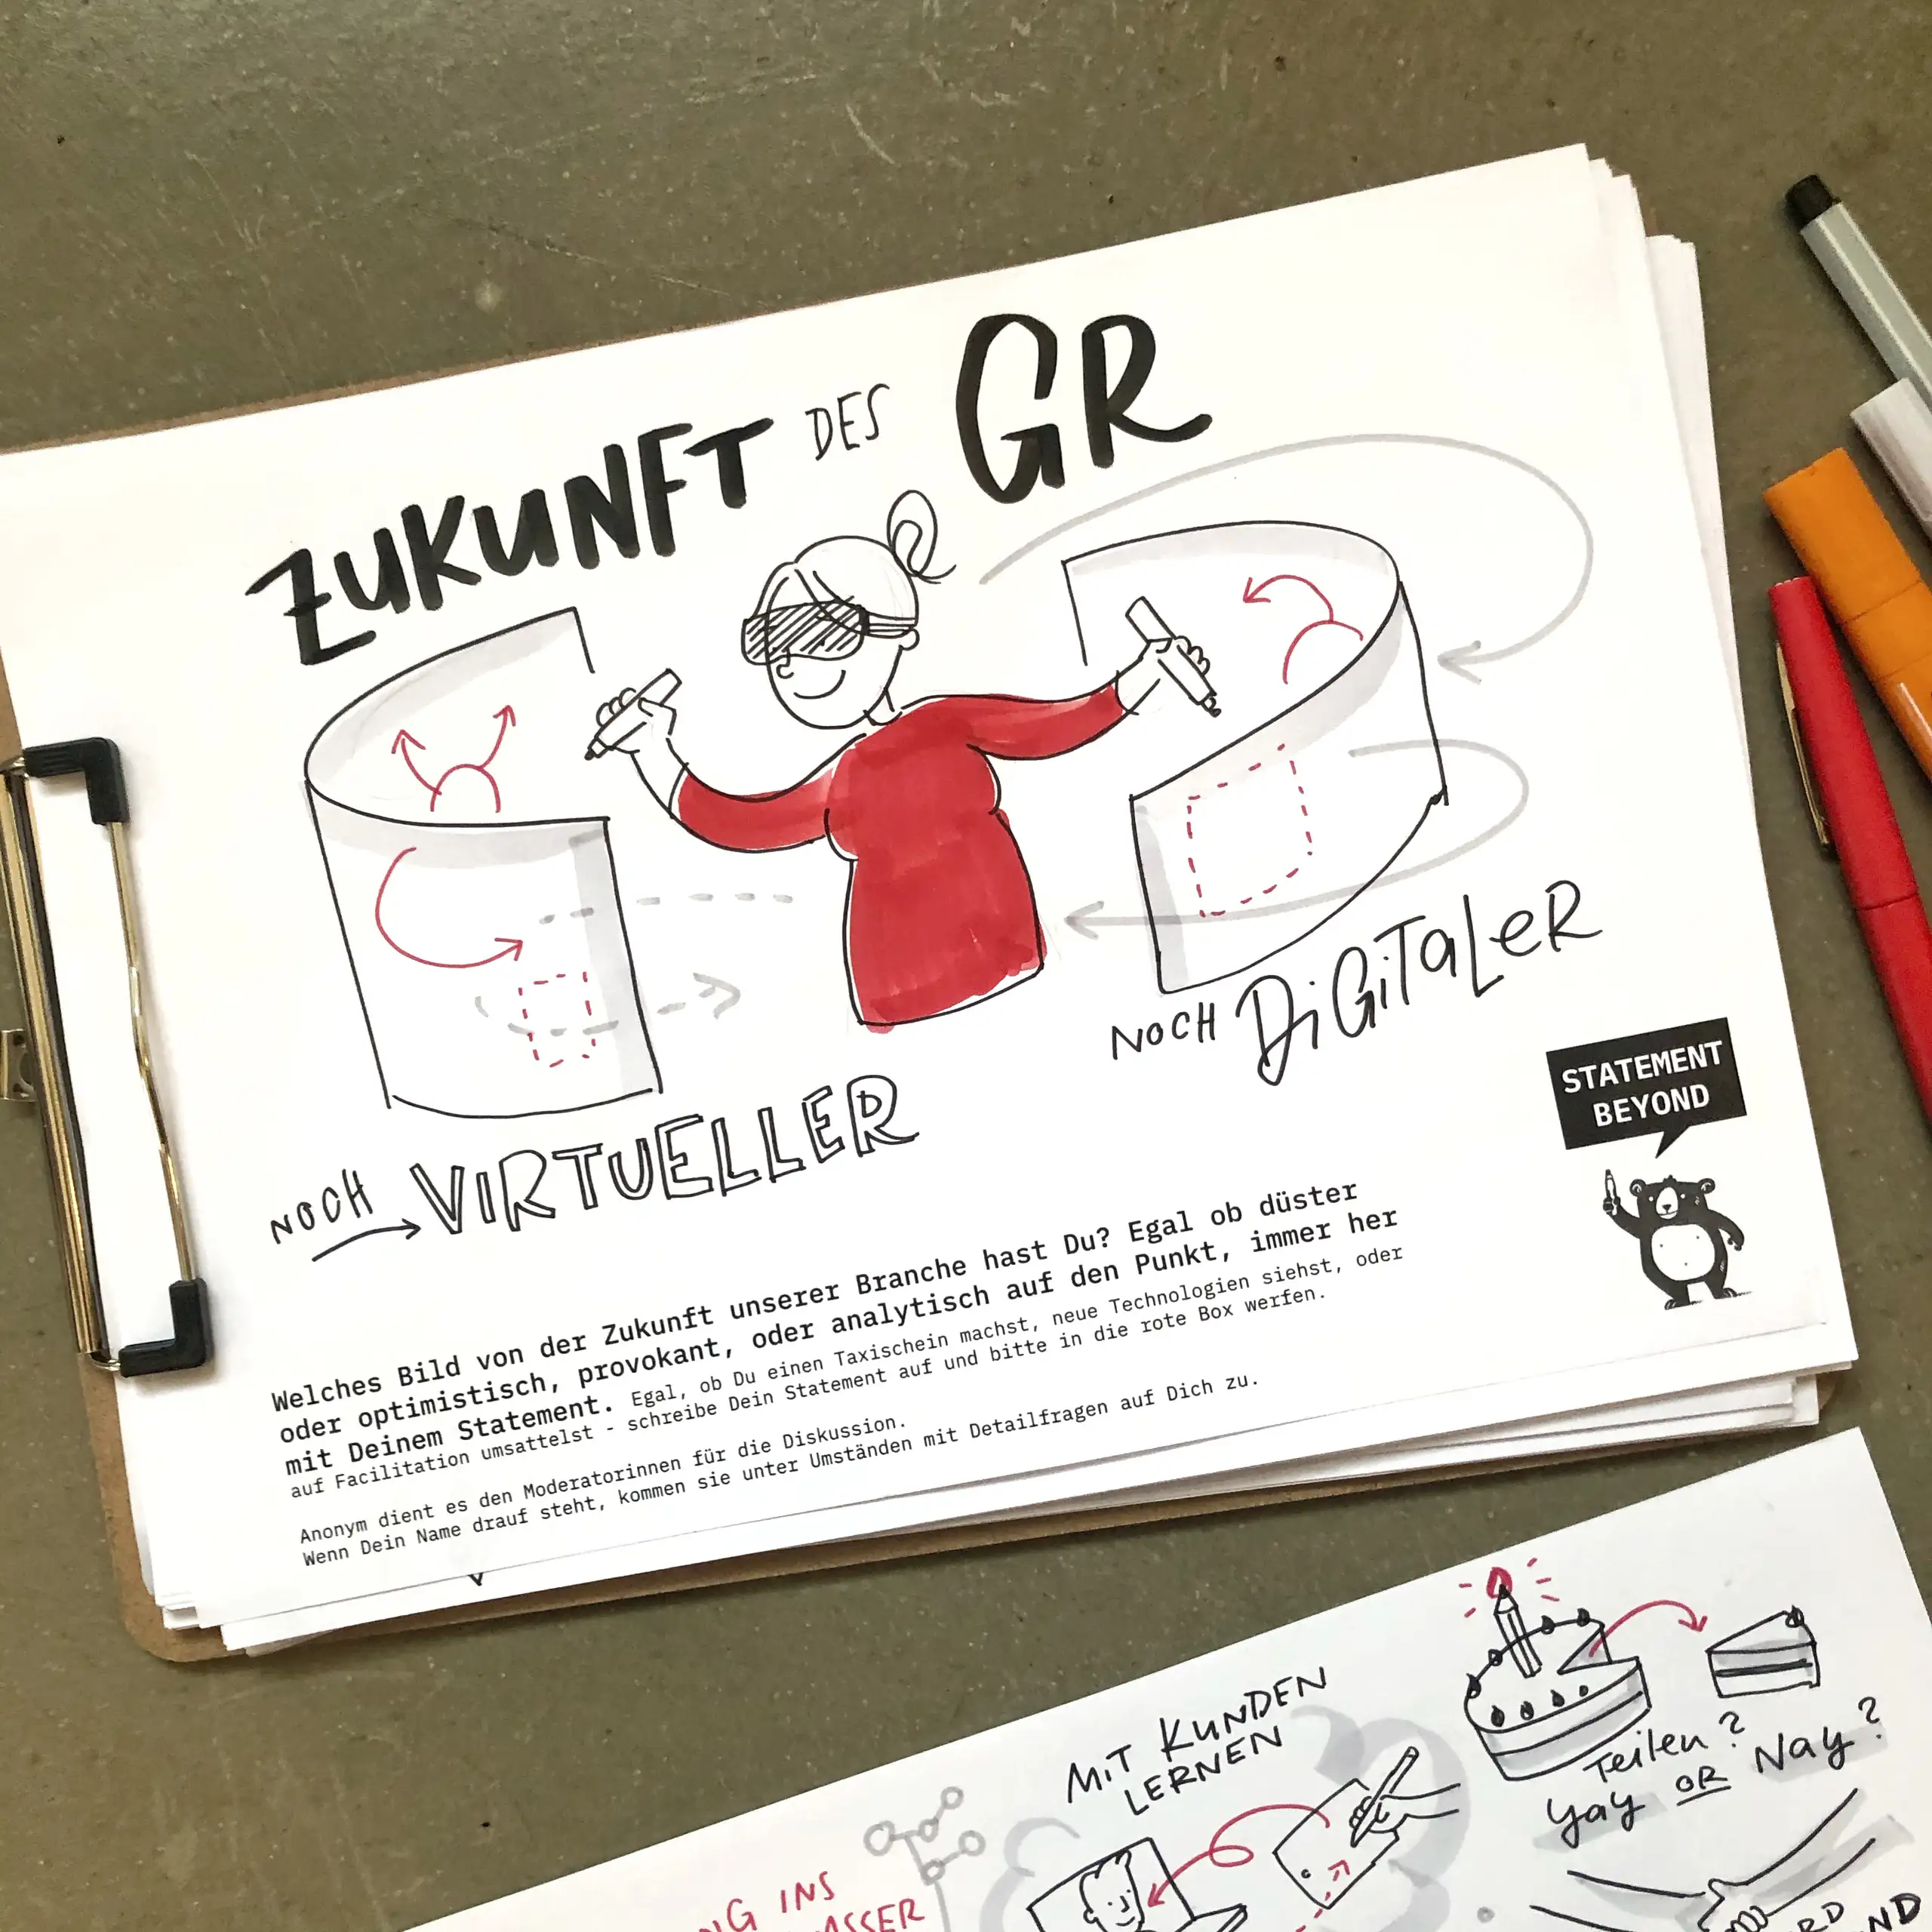 ZUKUNFT DES GR
NOCH DIGITALER
NOCH VIRTUELLER
STATEMENT
BEYOND
Welches Bild von der Zukunft unserer Branche hast Du? Egal ob düster
oder optimistisch, provokant, oder analytisch auf den Punkt, immer her
mit Deinem Statement. Egal, ob Du einen Taxischein machst, neue Technologien siehst, oder
auf Facilitation umsattelst - schreibe Dein Statement auf und bitte in die rote Box werfen.
Anonym dient es den Moderatorinnen für die Diskussion.
Wenn Dein Name drauf steht, kommen sie unter Umständen mit Detailfragen auf Dich zu.
MIT KUNDEN
LERNEN
Teilen?
Yay OR Nay?
INS